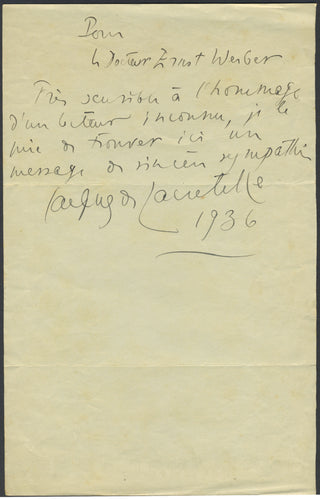 Pour
le Docteur Ernst Weiber
Très sensible à l'hommage
d'un lecteur inconnu, je le
prie de trouver ici un
message de sincère sympathie
Jacques de Lacretelle
1936